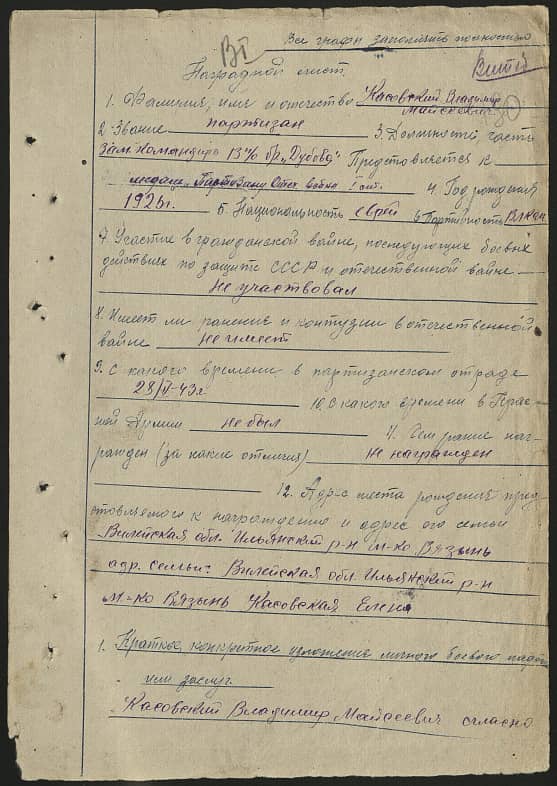 Все графы заполнять полностью
Наградной лист.
1. Фамилия, имя и отчество Касовский Владимир
2. Звание партизан 3. Должность, часть
зам. командира 13 % бр. „Дубова" Представляется к
медали Партизану Отеч. войны I ст. 4. Год рождения
1926г. 5. Национальность еврей 6. Партийность
7. Участие в гражданской войне, последующих боевых
действиях по защите СССР и отечественной войне —
не участвовал
8. Имеет ли ранение и контузии в отечественной
войне не имеет
9. С какого времени в партизанском отряде
10. С какого времени в Крас-
ной Армии не был 11. Чем ранее наг-
ражден (за какие отличия) не награжден
12. Адрес места рождения пред-
ставляемого к награждению и адрес его семьи
Вилейская обл. Ильянский р-н м-ко Вязынь
адр. семьи: Вилейская обл. Ильянский р-н
м-ко Вязынь Касовская Елена
1. Краткое, конкретное изложение личного боевого
или заслуг
Касовский Владимир Майсеевич согласно